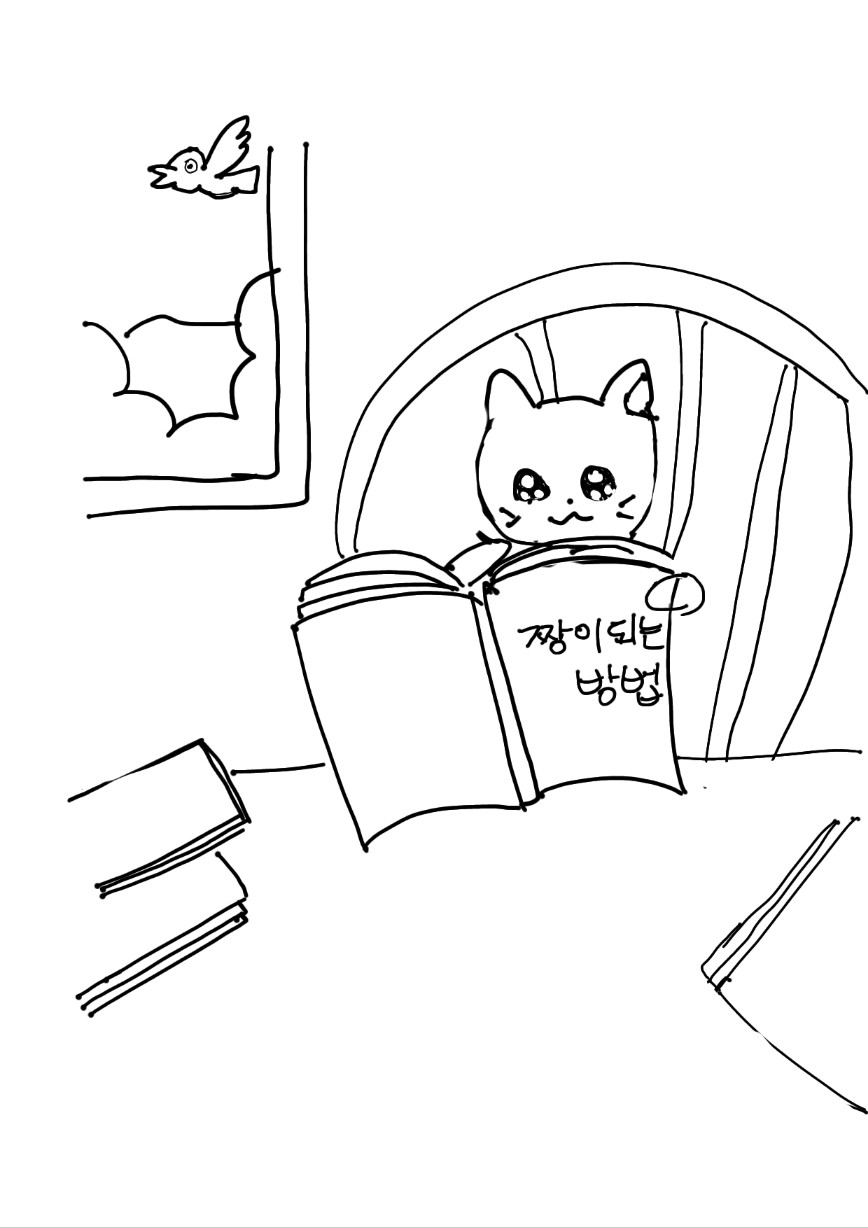 짱이되는
방법